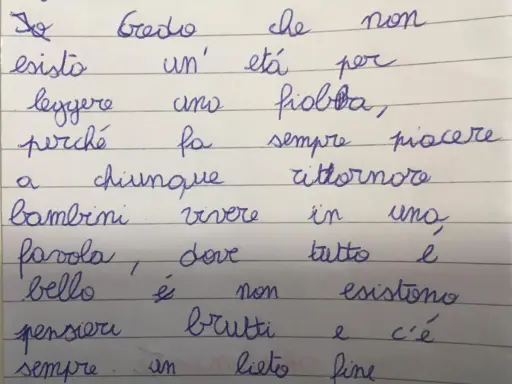 Io Credo che non
esista un' etá per
leggere una fiabba,
perché fa sempre piacere
a chiunque rittornare
bambini vivere in una
favola, dove tutto é
bello e non esistono
pensieri brutti e c'é
sempre un lieto fine